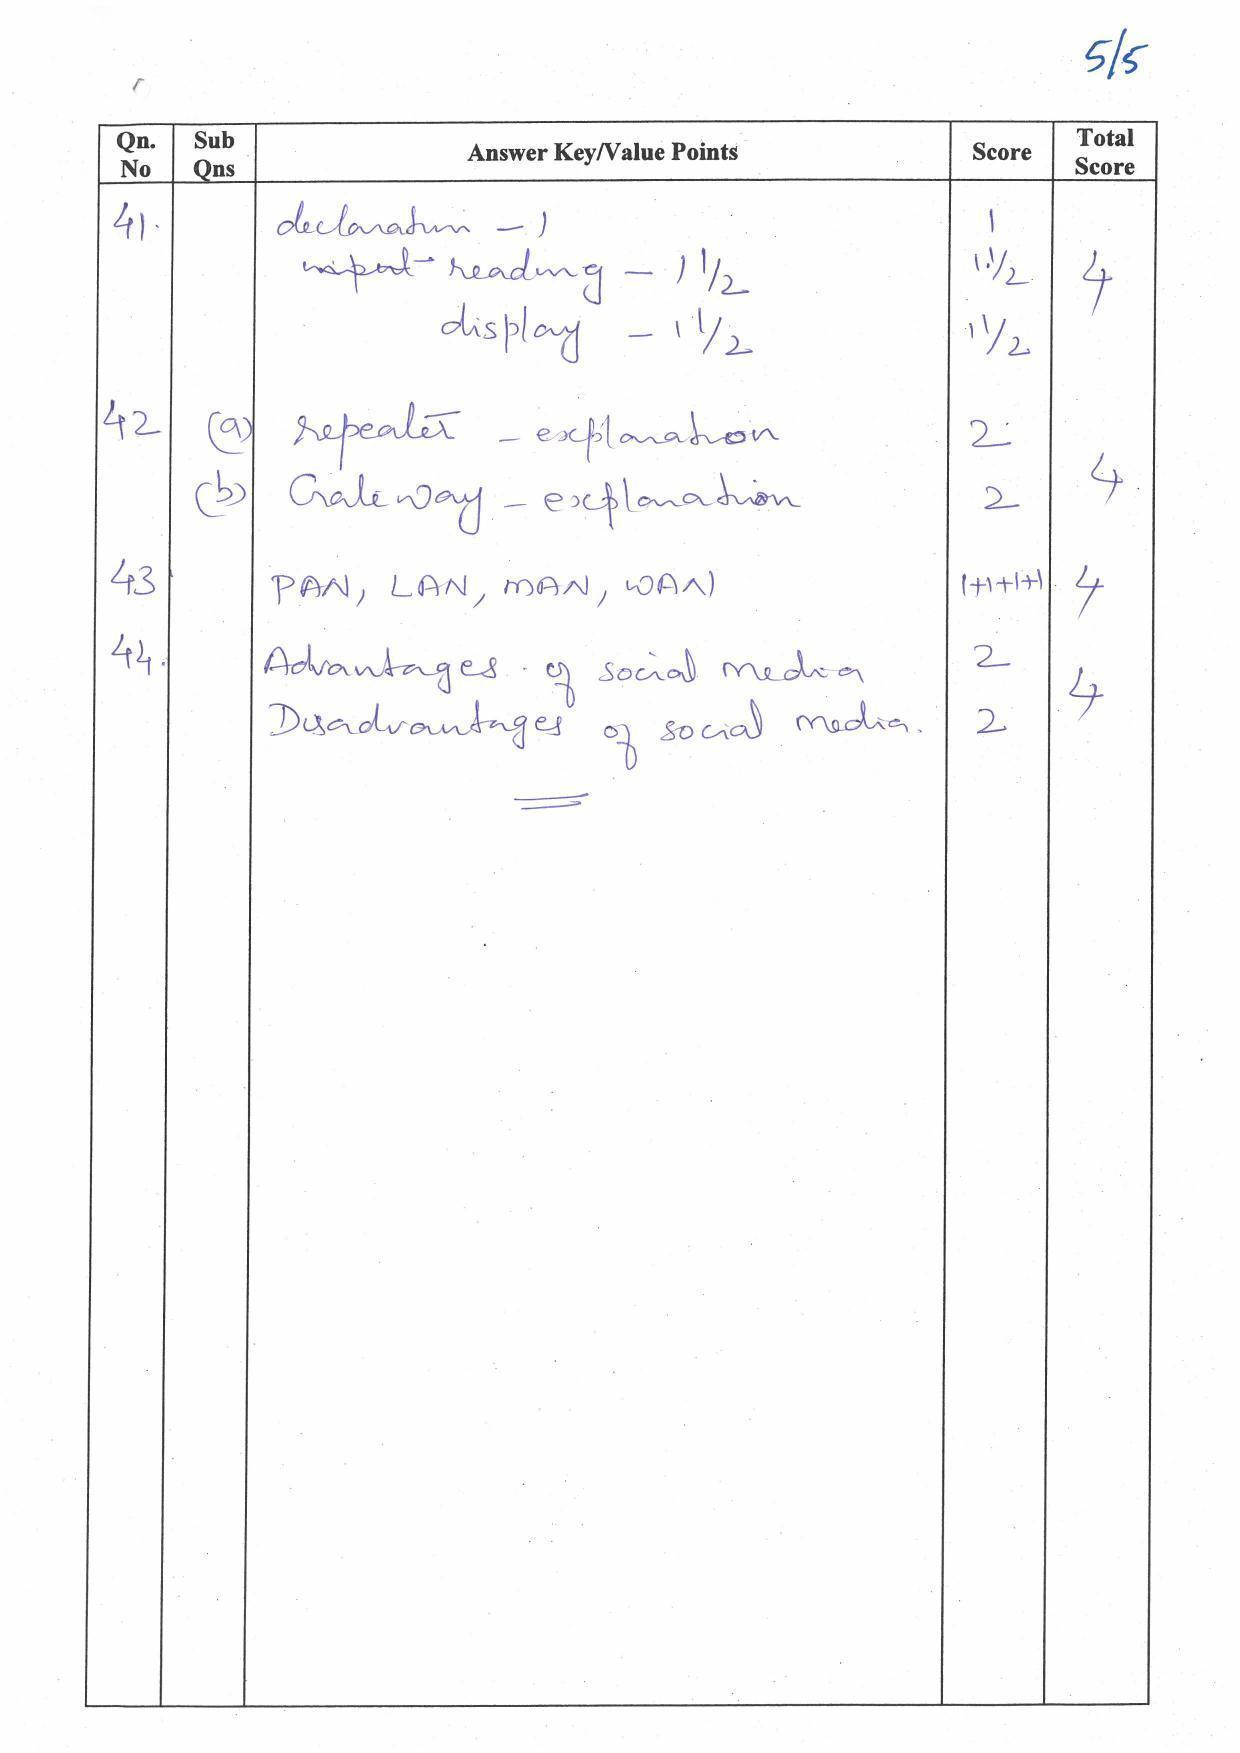 5/5
Qn. No Sub Qns Answer Key/Value Points Score Total Score
41. declaration - 1 1
input reading - 1 1/2 1 1/2 4
display - 1 1/2 1 1/2
42 (a) repeater - explanation 2
(b) Gateway - explanation 2 4
43 PAN, LAN, MAN, WAN 1+1+1+1 4
44. Advantages of social media 2
Disadvantages of social media. 2 4